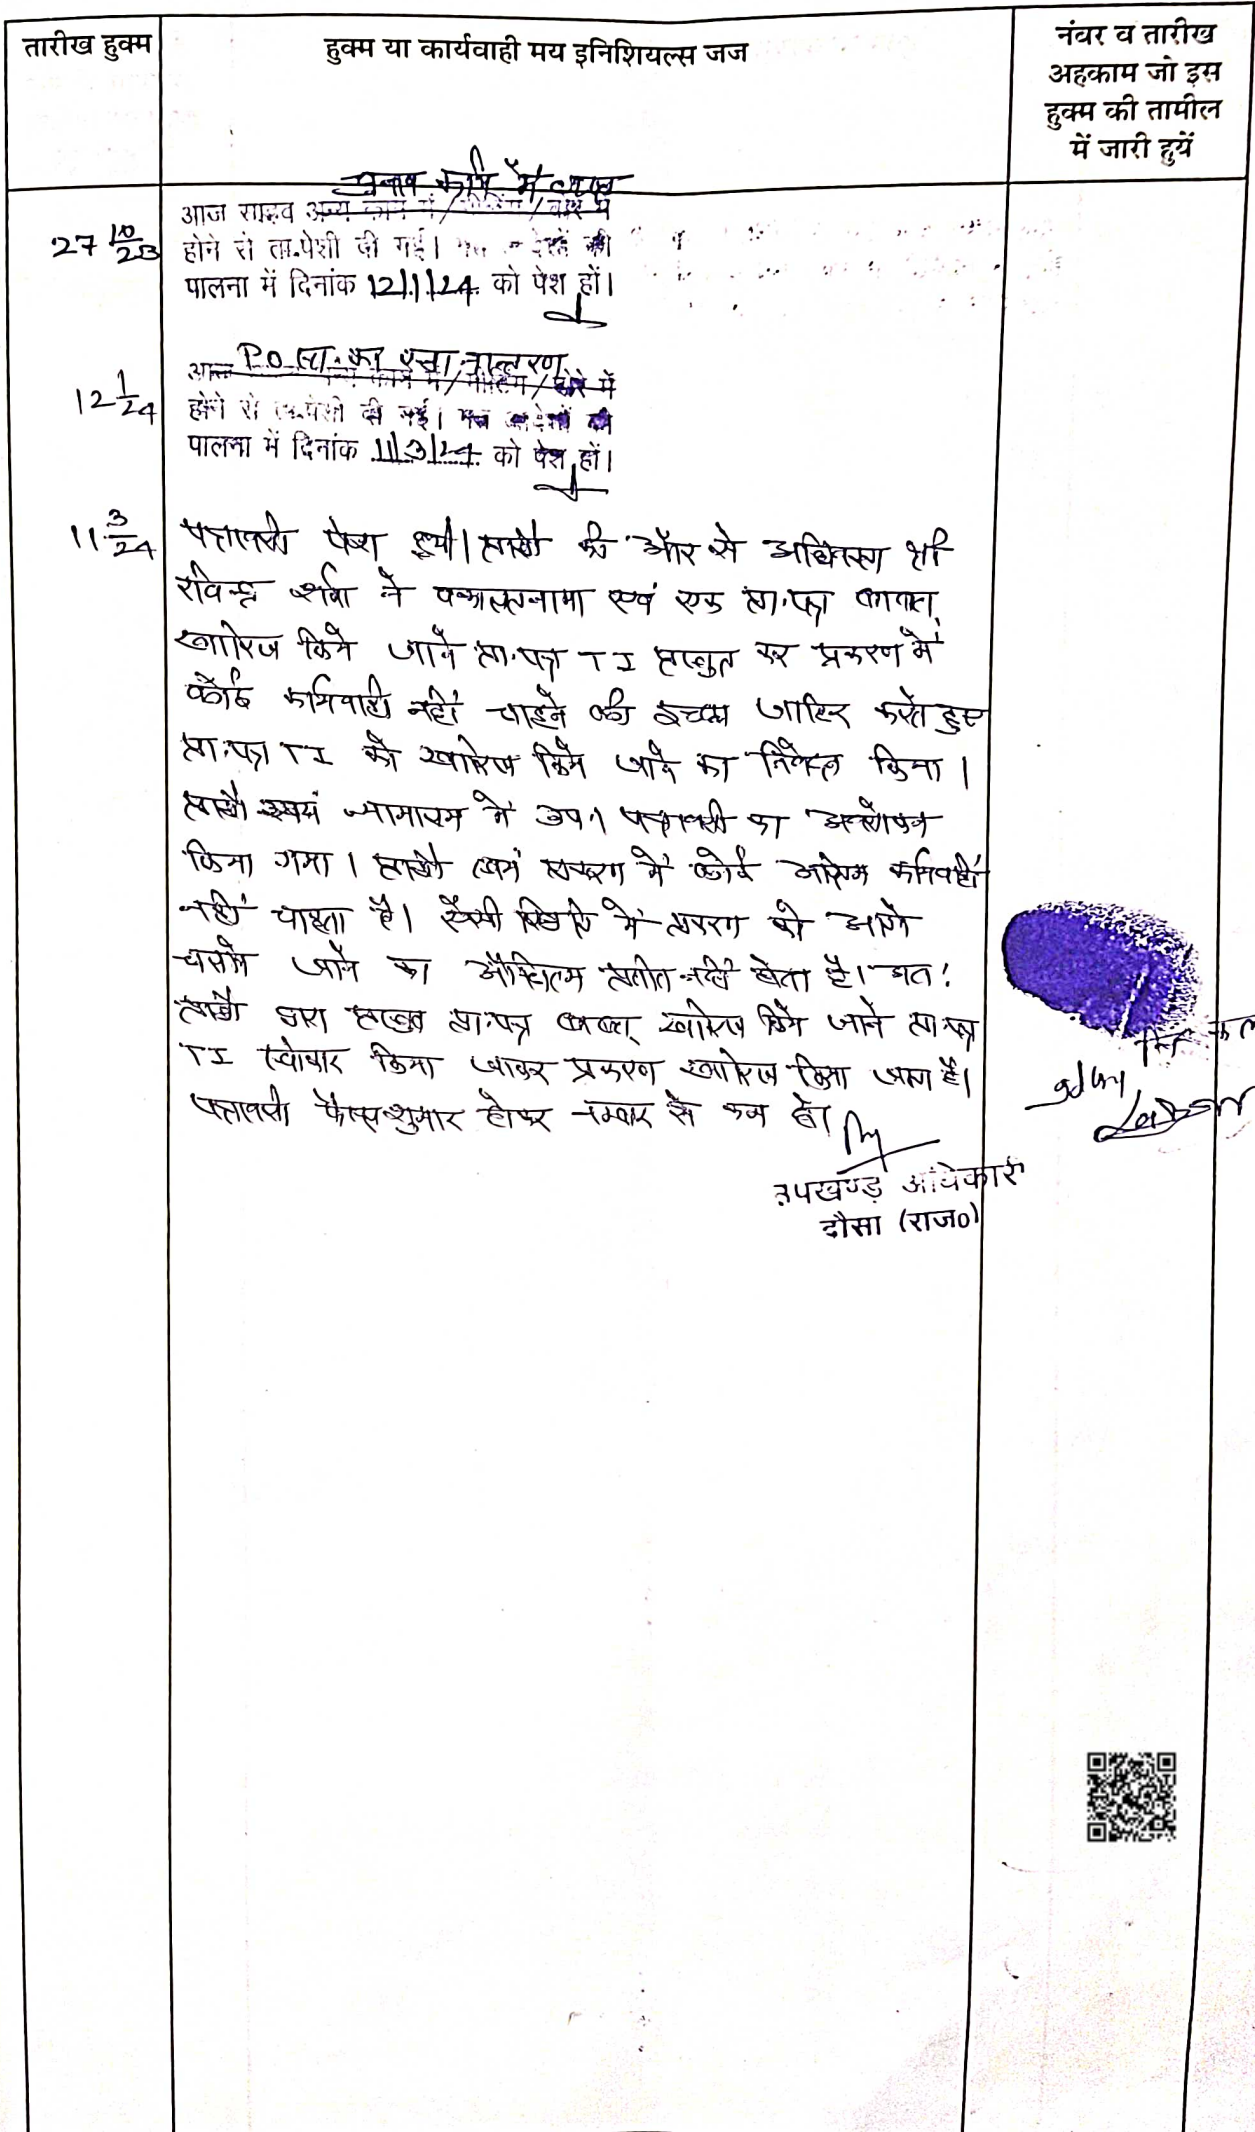 तारीख हुक्म
हुक्म या कार्यवाही मय इनिशियल्स जज
नंबर व तारीख
अहकाम जो इस
हुक्म की तामील
में जारी हुयें
चुनाव कार्य में व्यस्त
27 10/23
आज साहब अन्य काम में/मीटिंग/दौरे में
होने से ता.पेशी दी गई। की
पालना में दिनांक 12/1/24 को पेश हों।
12 1/24
P.O सा. का स्थानान्तरण
आज काम में/मीटिंग/दौरे में
होने से ता.पेशी दी गई। की
पालना में दिनांक 11/3/24 को पेश हों।
11 3/24
पत्रावली पेश हुयी। प्रार्थी की ओर से अधिवक्ता श्री
रविन्द्र शर्मा ने वकालतनामा एवं एक प्रा.पत्र बाबत्
खारिज किये जाने प्रा.पत्र T I प्रस्तुत कर प्रकरण में
कोई कार्यवाही नहीं चाहने की इच्छा जाहिर करते हुए
प्रा.पत्र T I को खारिज किये जाने का निवेदन किया।
प्रार्थी स्वयं न्यायालय में उप। पत्रावली का अवलोकन
किया गया। प्रार्थी स्वयं प्रकरण में कोई अग्रिम कार्यवाही
नहीं चाहता है। ऐसी स्थिति में प्रकरण को आगे
चलाये जाने का औचित्य प्रतीत नहीं होता है। अतः
प्रार्थी द्वारा प्रस्तुत प्रा.पत्र बाबत् खारिज किये जाने प्रा.पत्र
T I स्वीकार किया जाकर प्रकरण खारिज किया जाता है।
पत्रावली फैसल शुमार होकर नम्बर से कम हो।
उपखण्ड अधिकारी
दौसा (राज०)